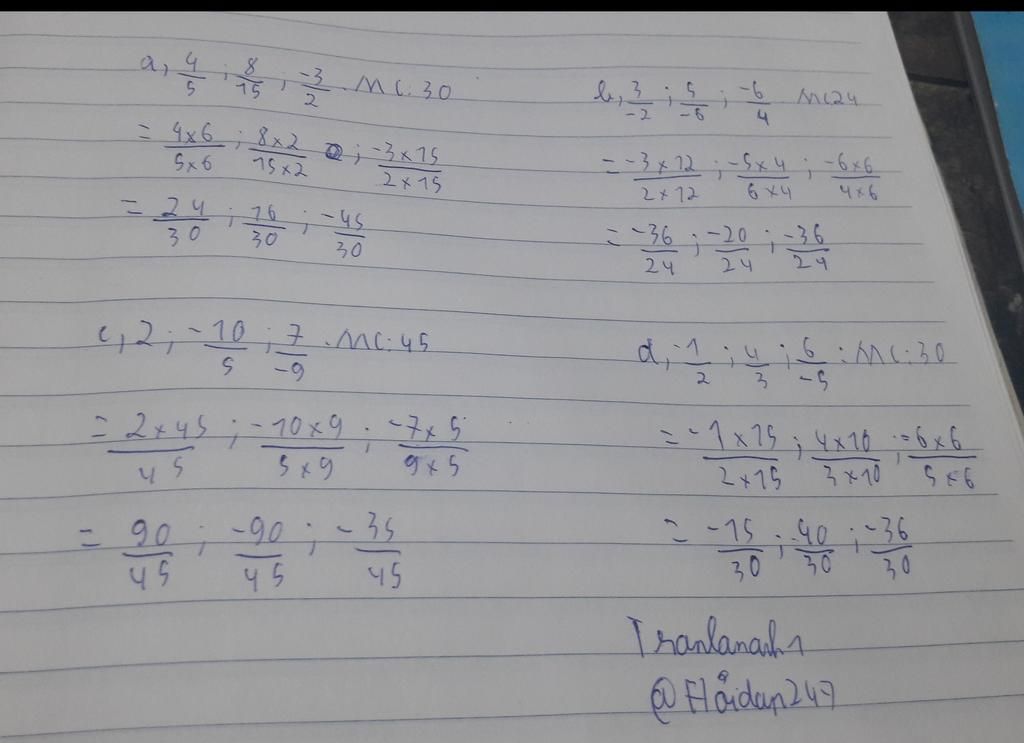 a, 4/5 ; 8/15 ; -3/2 . MC: 30
= 4x6/5x6 ; 8x2/15x2 ; -3x15/2x15
= 24/30 ; 16/30 ; -45/30
b, 3/-2 ; 5/-6 ; -6/4 MC24
= -3x12/2x12 ; -5x4/6x4 ; -6x6/4x6
= -36/24 ; -20/24 ; -36/24
c, 2 ; -10/5 ; 7/-9 . MC: 45
= 2x45/45 ; -10x9/5x9 ; -7x5/9x5
= 90/45 ; -90/45 ; -35/45
d, -1/2 ; 4/3 ; 6/-5 : MC: 30
= -1x15/2x15 ; 4x10/3x10 ; -6x6/5x6
= -15/30 ; 40/30 ; -36/30
Tranlananh1
@Hỏidap247